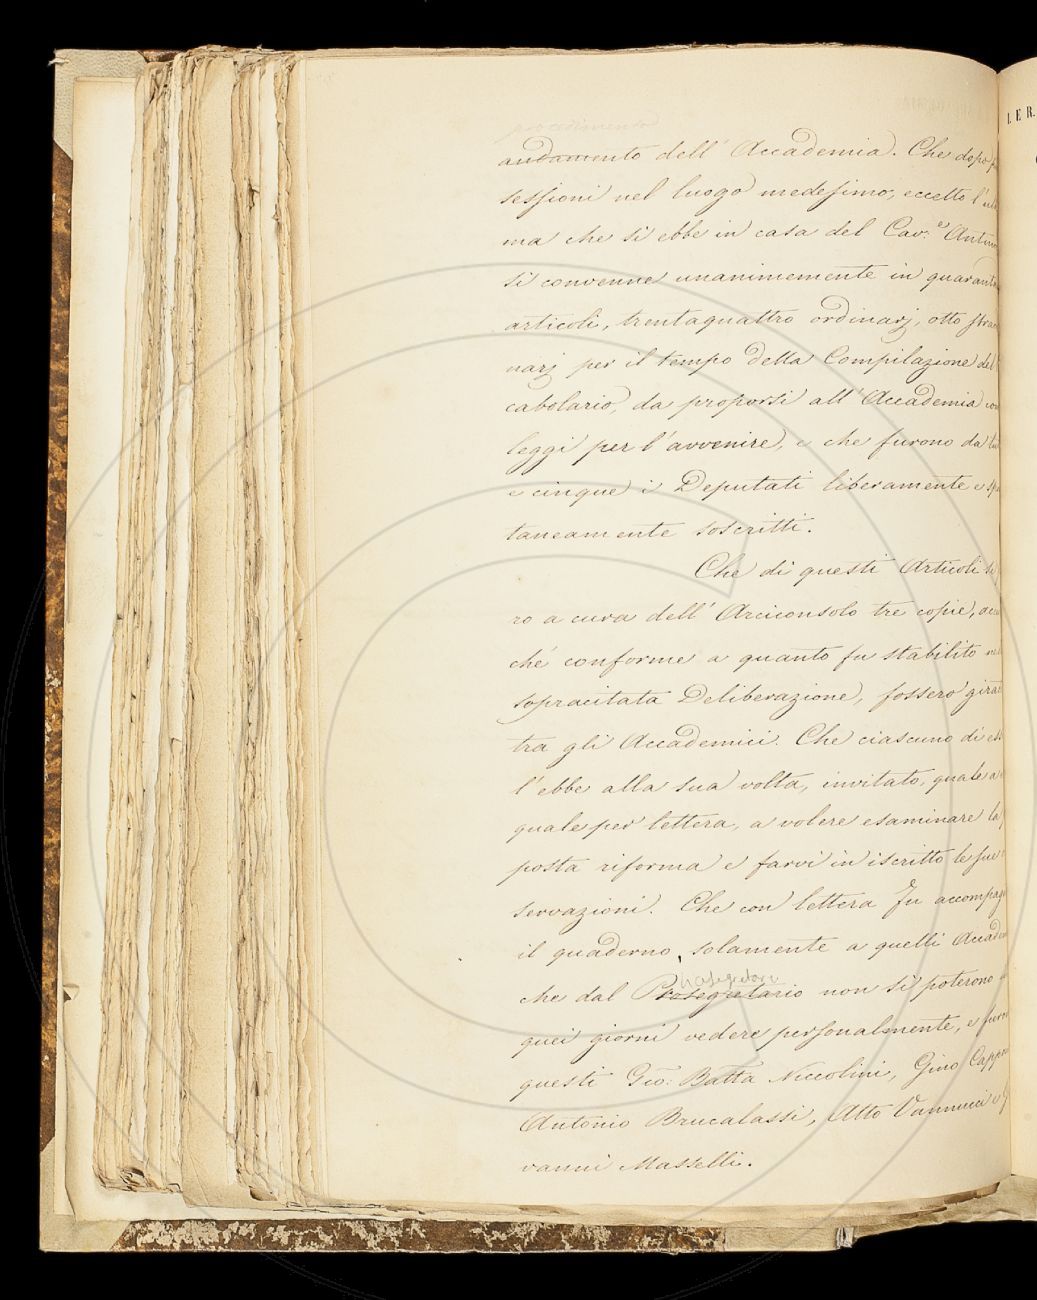 procedimento
andamento dell' Accademia. Che dopo
sessioni nel luogo medesimo, eccetto l'ul
ma che si ebbe in casa del Cav.e Antin
si convenne unanimemente in quaranta
articoli, trentaquattro ordinarj, otto stra
narj per il tempo della Compilazione del
cabolario, da proporsi all' Accademia co
leggi per l'avvenire, e che furono da tut
e cinque i Deputati liberamente e spo
taneamente soscritti.
Che di questi Articoli si
ro a cura dell' Arciconsolo tre copie, acc
chè conforme a quanto fu stabilito nel
sopracitata Deliberazione, fossero girat
tra gli Accademici. Che ciascuno di es
l'ebbe alla sua volta, invitato, quale a
quale per lettera, a volere esaminare la
posta riforma e farvi in iscritto le sue
servazioni. Che con lettera fu accompag
il quaderno, solamente a quelli Accade
che dal Prosegretario non si poterono
quei giorni vedere personalmente, e furo
questi Gio: Batta Niccolini, Gino Cappo
Antonio Brucalassi, Atto Vannucci e G
vanni Masselli.
I. E R.